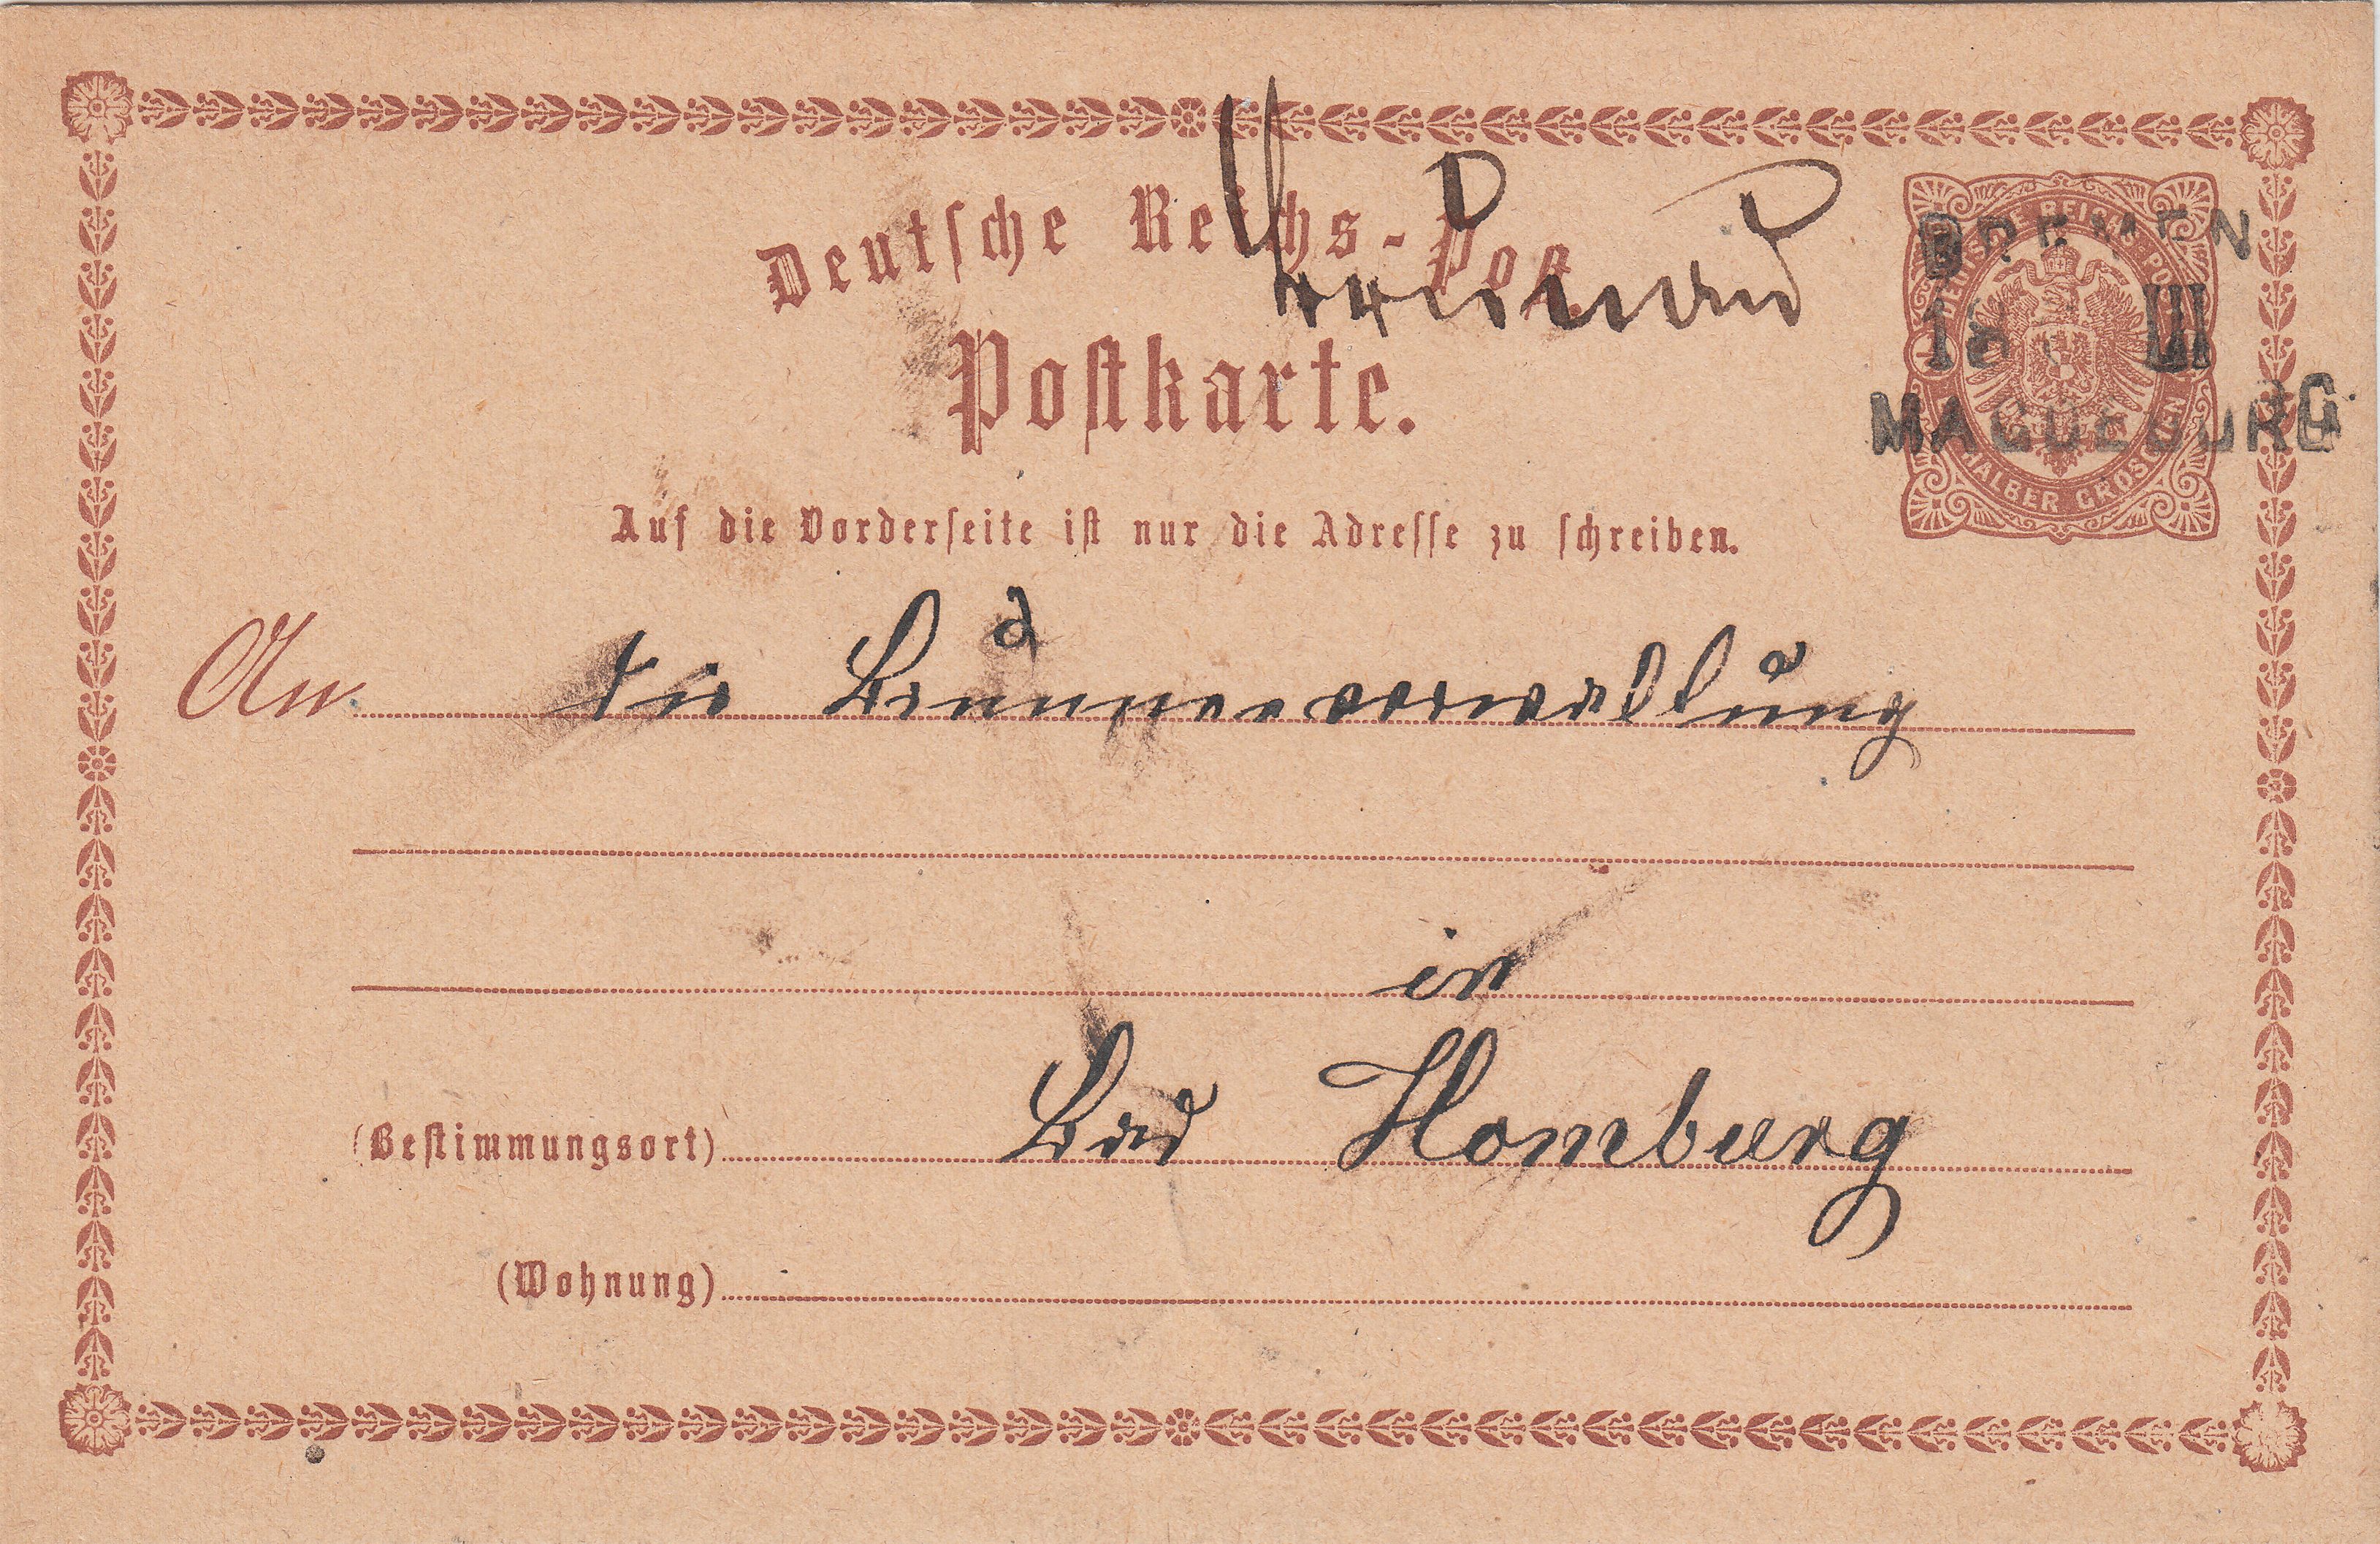 Deutsche Reichs-Post.
Postkarte.
DEUTSCHE REICHS-POST
HALBER GROSCHEN
BREMEN
18 III
MAGDEBURG
Auf die Vorderseite ist nur die Adresse zu schreiben.
An die Brunnenverwaltung
in
(Bestimmungsort) Bad Homburg
(Wohnung)